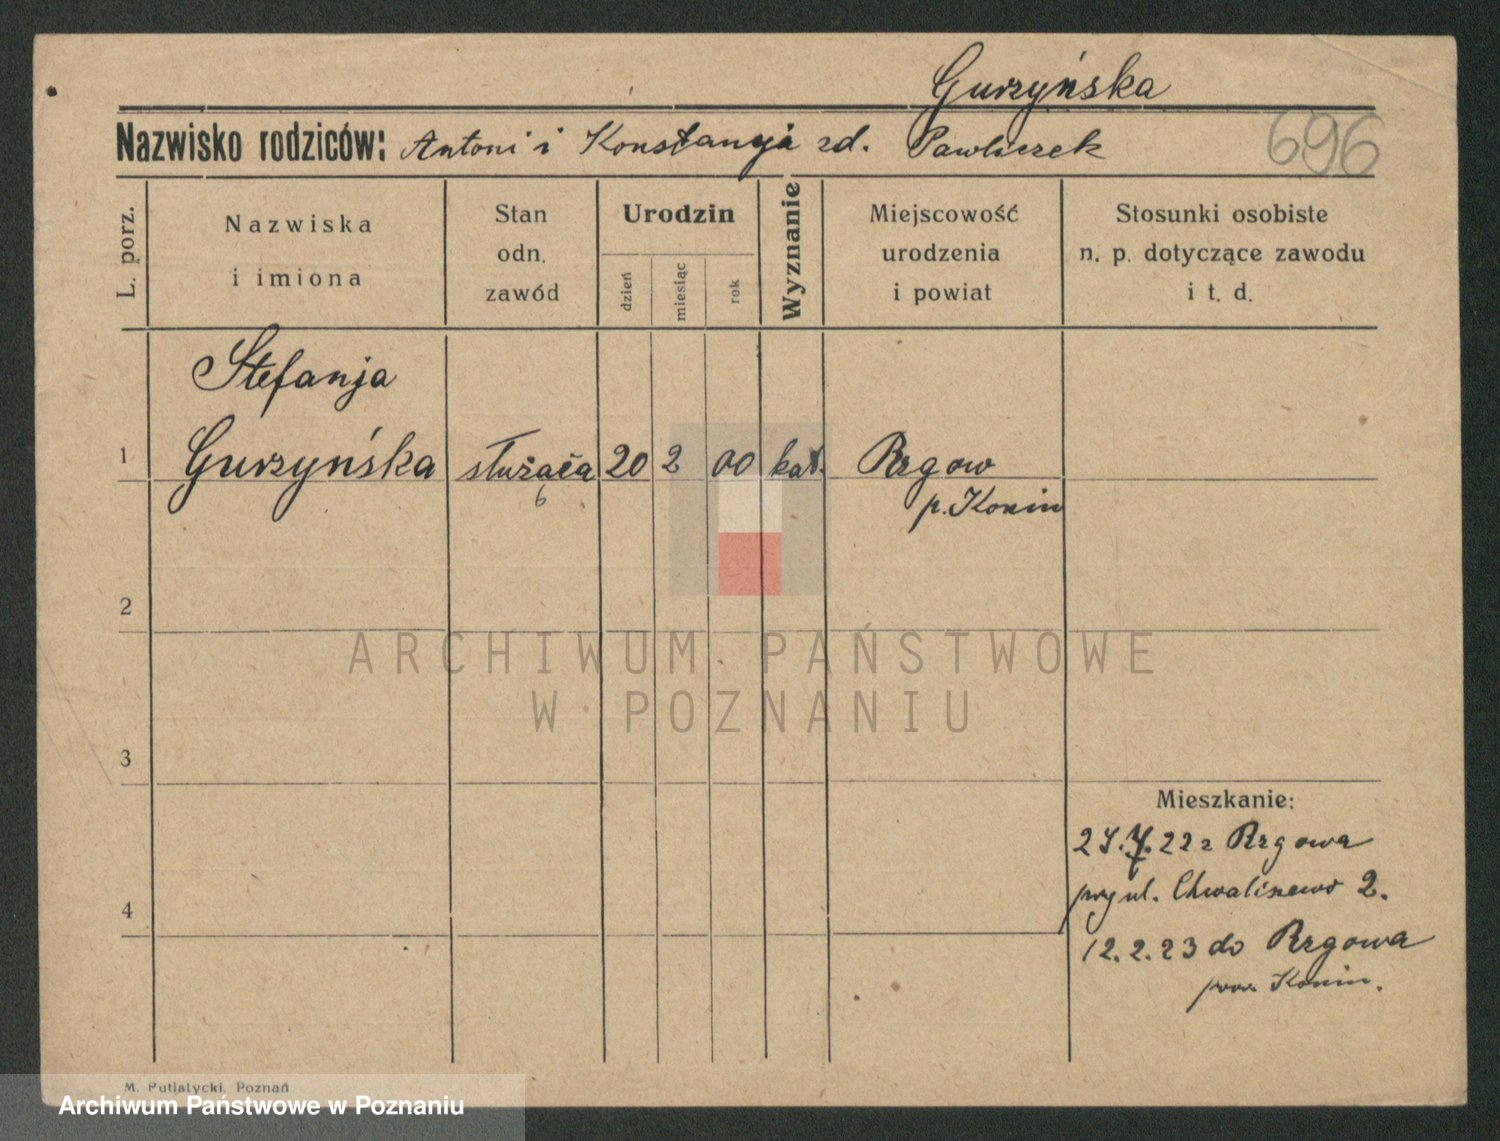 Gurzyńska
Nazwisko rodziców: Antoni i Konstancja zd. Pawliczek
696
L. porz.
Nazwiska
i imiona
Stan
odn.
zawód
Urodzin
dzień
miesiąc
rok
Wyznanie
Miejscowość
urodzenia
i powiat
Stosunki osobiste
n. p. dotyczące zawodu
i t. d.
Stefanja
1 Gurzyńska służąca 20 2 00 kat. Rzgow
6
p. Konin
2
ARCHIWUM PAŃSTWOWE
W POZNANIU
3
Mieszkanie:
22 z Rzgowa
ul. 2.
4
12.2.23 do Rzgowa
pow Konin.
M. Putiatycki, Poznań
Archiwum Państwowe w Poznaniu